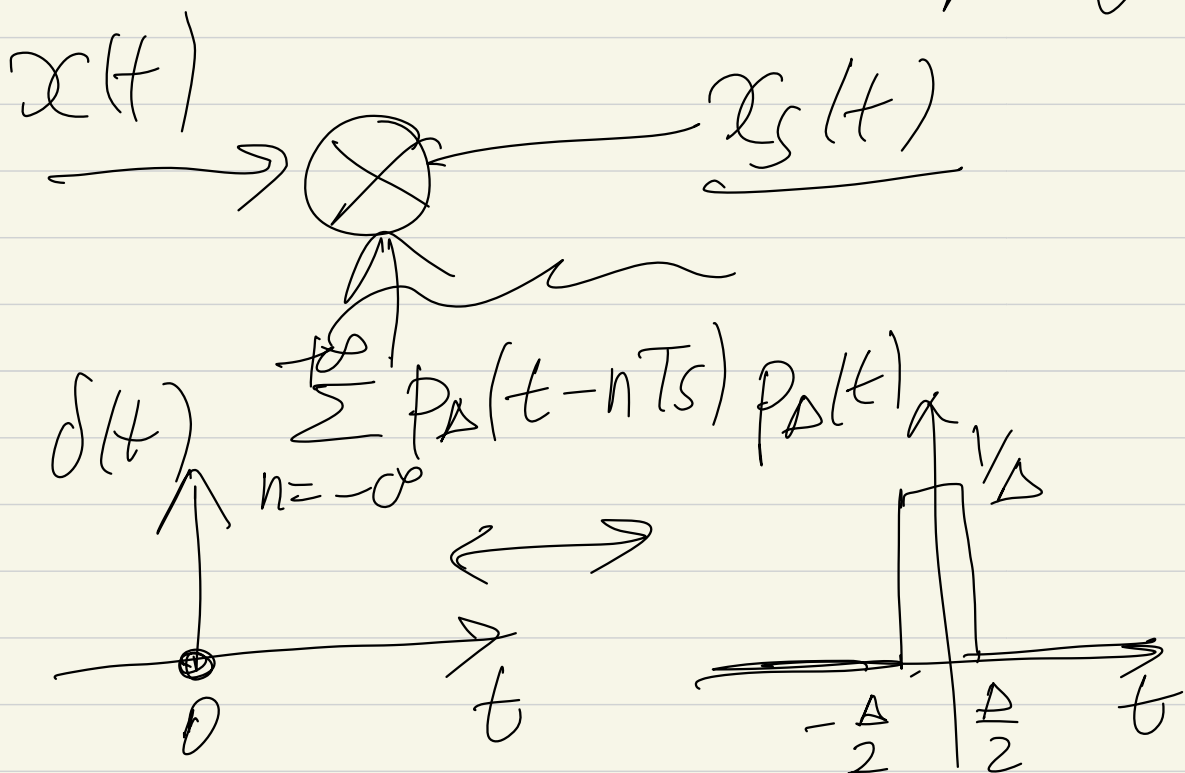 x(t)
x_s(t)
+∞
∑ p_Δ(t-nTs) p_Δ(t)
n=-∞
δ(t)
1/Δ
0
t
-Δ/2
Δ/2
t